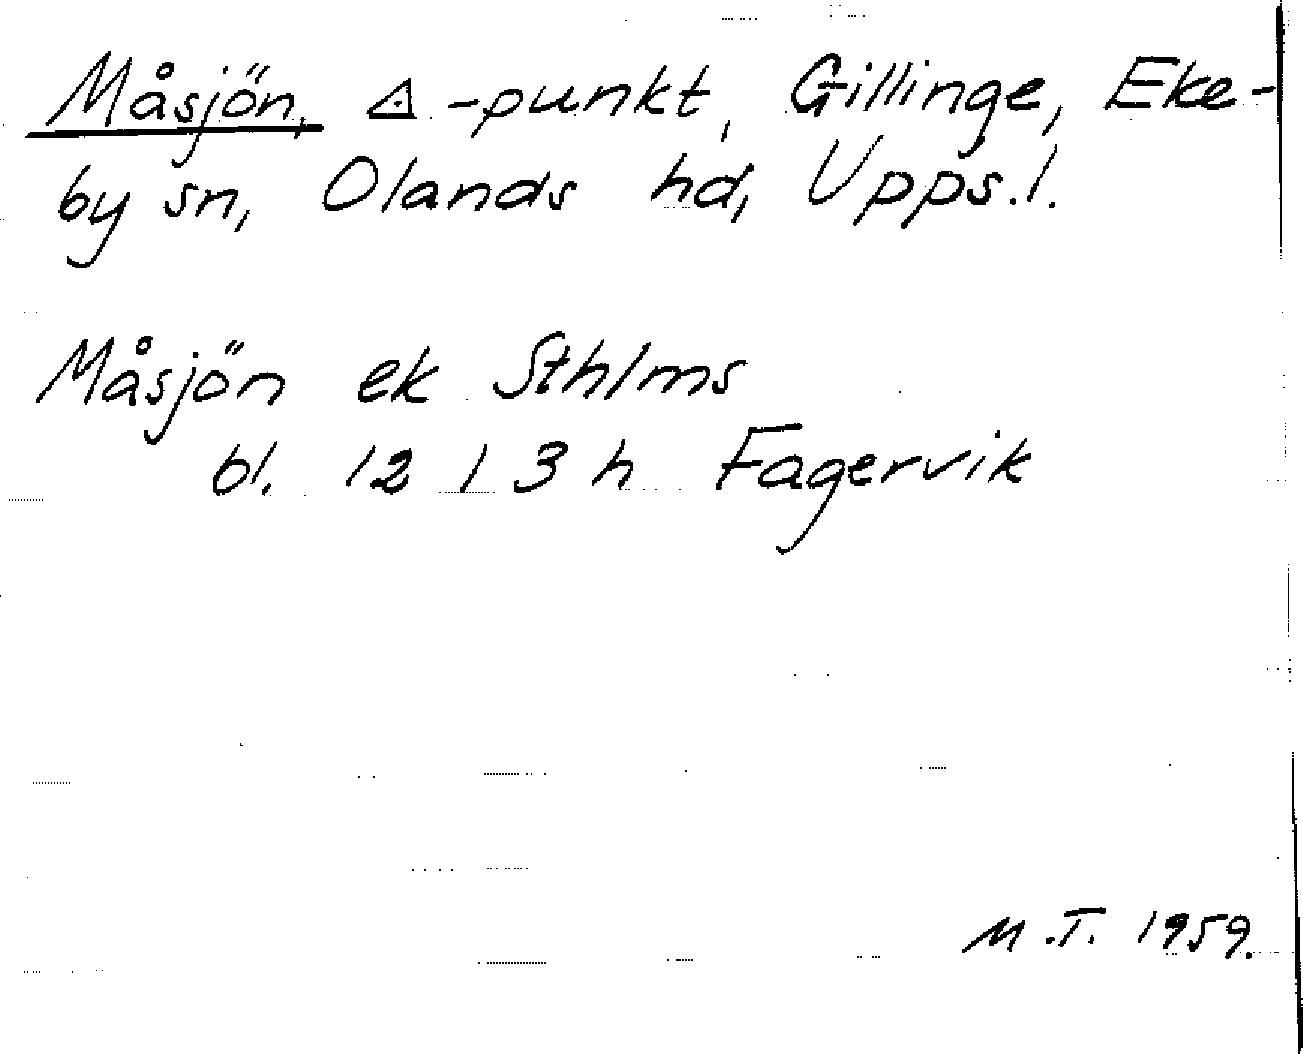 Måsjön, △-punkt, Gillinge, Eke-
by sn, Olands hd, Upps.l.
Måsjön ek Sthlms
bl. 12 I 3 h Fagervik
M.T. 1959.